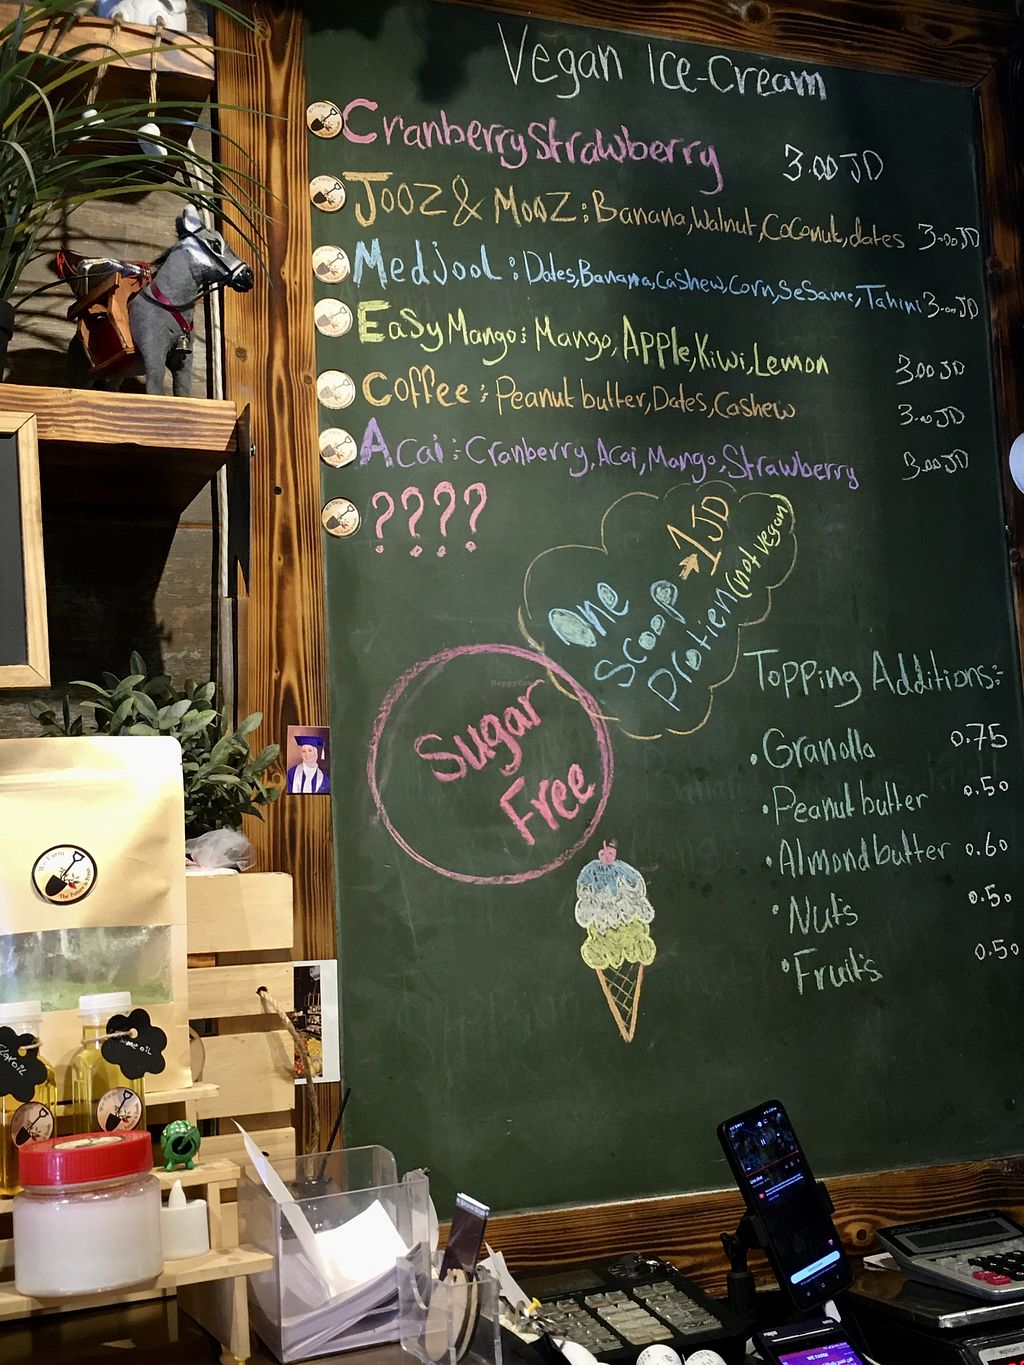 Vegan Ice-Cream
Cranberry Strawberry 3.00 JD
Jooz & Mooz: Banana, Walnut, Coconut, dates 3.00 JD
Medjool: Dates, Banana, Cashew, Corn, Sesame, Tahini 3.00 JD
Easy Mango: Mango, Apple, Kiwi, Lemon 3.00 JD
Coffee: Peanut butter, Dates, Cashew 3.00 JD
Acai: Cranberry, Acai, Mango, Strawberry 3.00 JD
????
One
Scoop → 1 JD
Protien (not vegan)
Sugar
Free
HappyCow
Topping Additions:
• Granolla 0.75
• Peanut butter 0.50
• Almond butter 0.60
• Nuts 0.50
• Fruits 0.50
We Farm
The Future is Fresh
WEIGHT